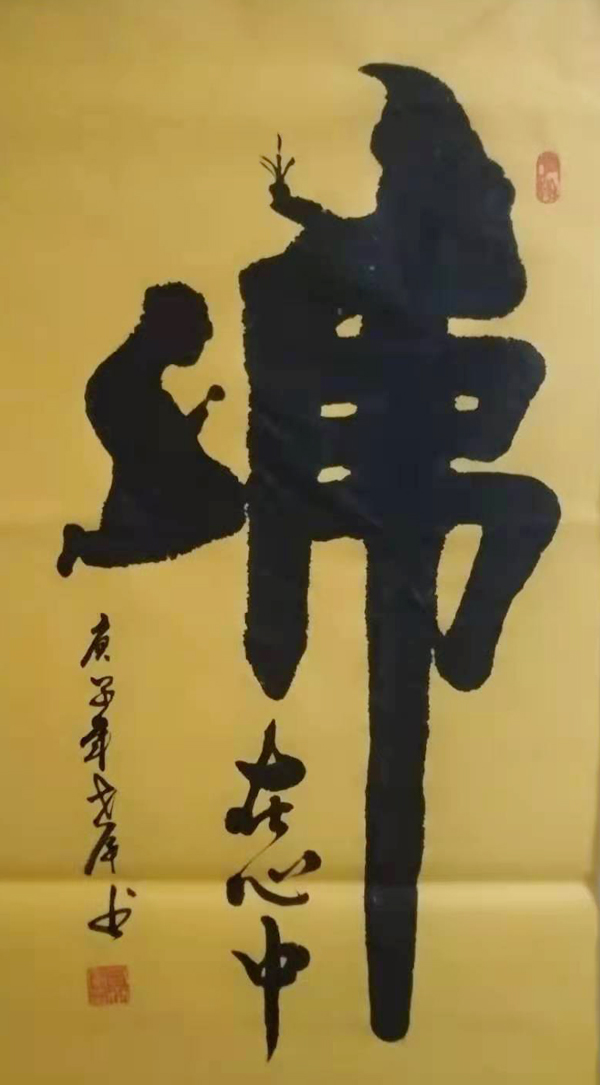 佛
在心中
庚子年
书